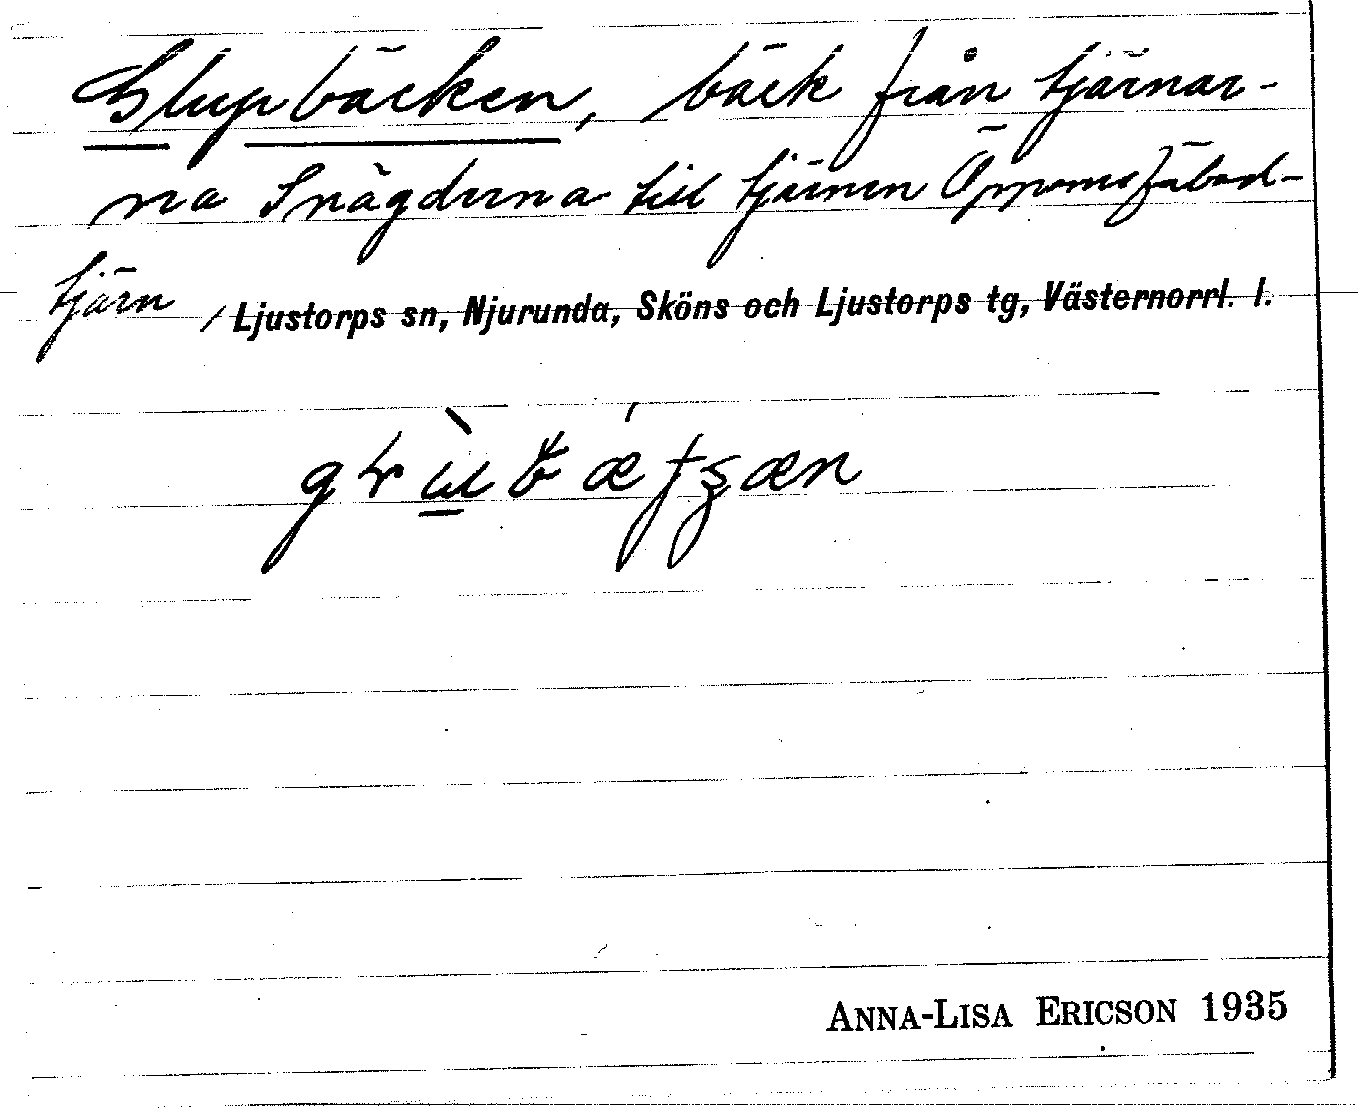 Glupbäcken, bäck från tjärnar-
na Snägderna till tjärnen Öppomsfäbod-
tjärn / Ljustorps sn, Njurunda, Sköns och Ljustorps tg, Västernorrl. l.
ANNA-LISA ERICSON 1935